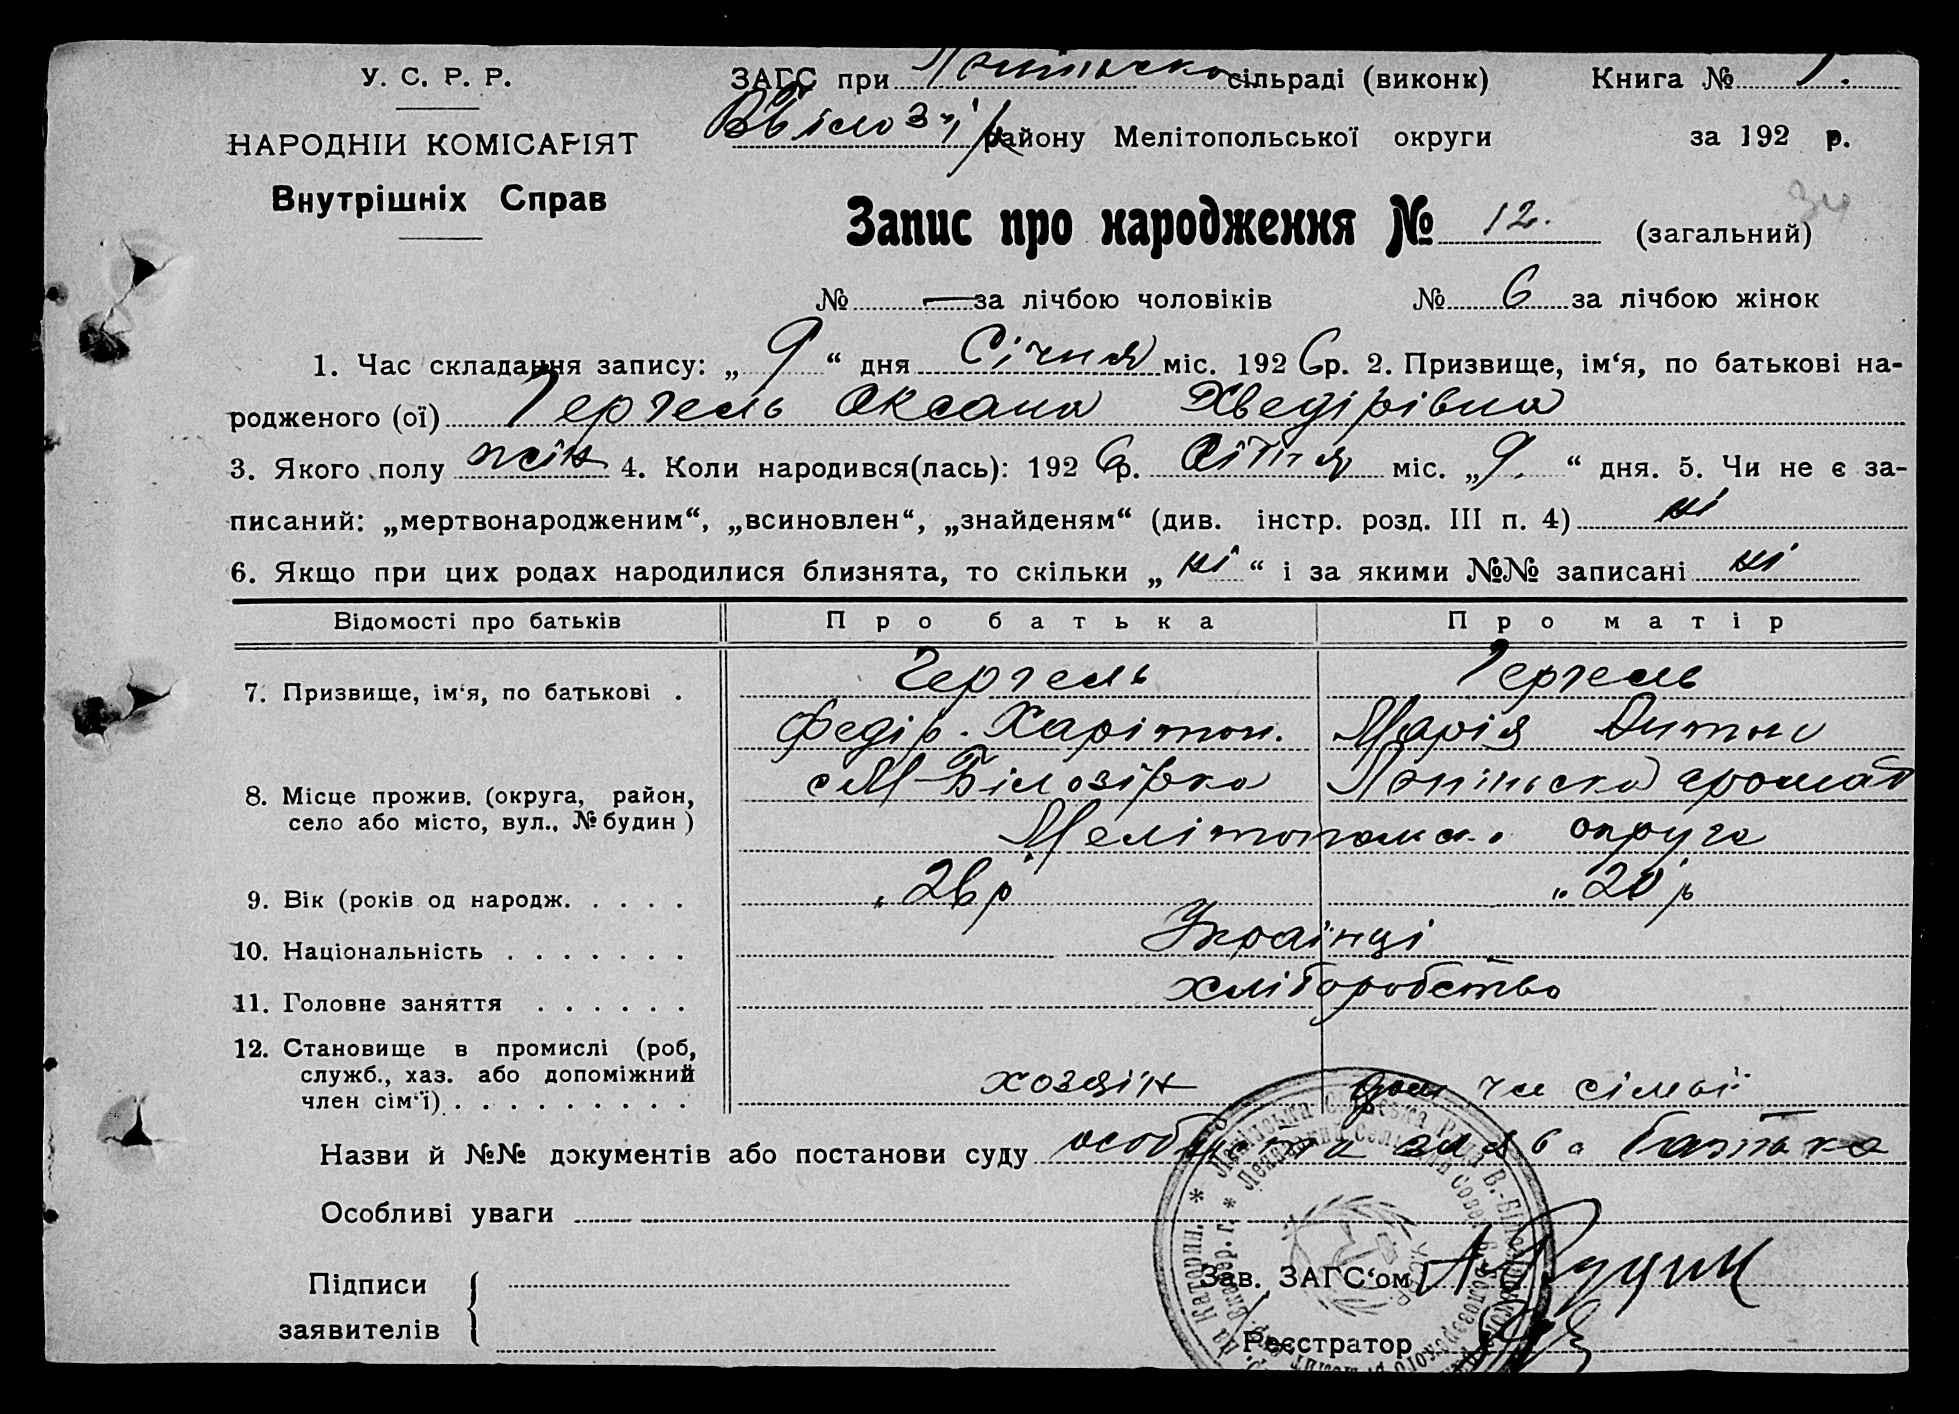 У. С. Р. Р.
НАРОДНІЙ КОМІСАРІЯТ
Внутрішніх Справ
ЗАГС при сільраді (виконк) Книга № 1.
району Мелітопольської округи за 192 р.
34
Запис про народження № 12. (загальний)
№ — за лічбою чоловіків № 6 за лічбою жінок
1. Час складання запису: „ 9 “ дня Січня міс. 192 6 р. 2. Призвище, ім‘я, по батькові на-
родженого (ої) Гергель Оксана Хведірівна
3. Якого полу жін 4. Коли народився(лась): 192 6 р. Січня міс. „ 9. “ дня. 5. Чи не є за-
писаний: „мертвонародженим“, „всиновлен“, „знайденям“ (див. інстр. розд. III п. 4) ні
6. Якщо при цих родах народилися близнята, то скільки „ ні “ і за якими №№ записані ні
Відомості про батьків Про батька Про матір
7. Призвище, ім‘я, по батькові . Гергель Гергель
Федір. Харітон. Марія
8. Місце прожив. (округа, район, с М-Білозірка громад
село або місто, вул., № будин ) округа
9. Вік (років од народж. . . . . 26 р „ 20 р
10. Національність . . . . . . . Українці
11. Головне заняття . . . . . . хліборобство
12. Становище в промислі (роб,
служб., хаз. або допоміжний хозяїн чл сімьї
член сім‘ї) . . . . . . . . .
Назви й №№ документів або постанови суду особиста заява батька
Особливі уваги
Підписи
заявителів
Зав. ЗАГС‘ом
Реєстратор